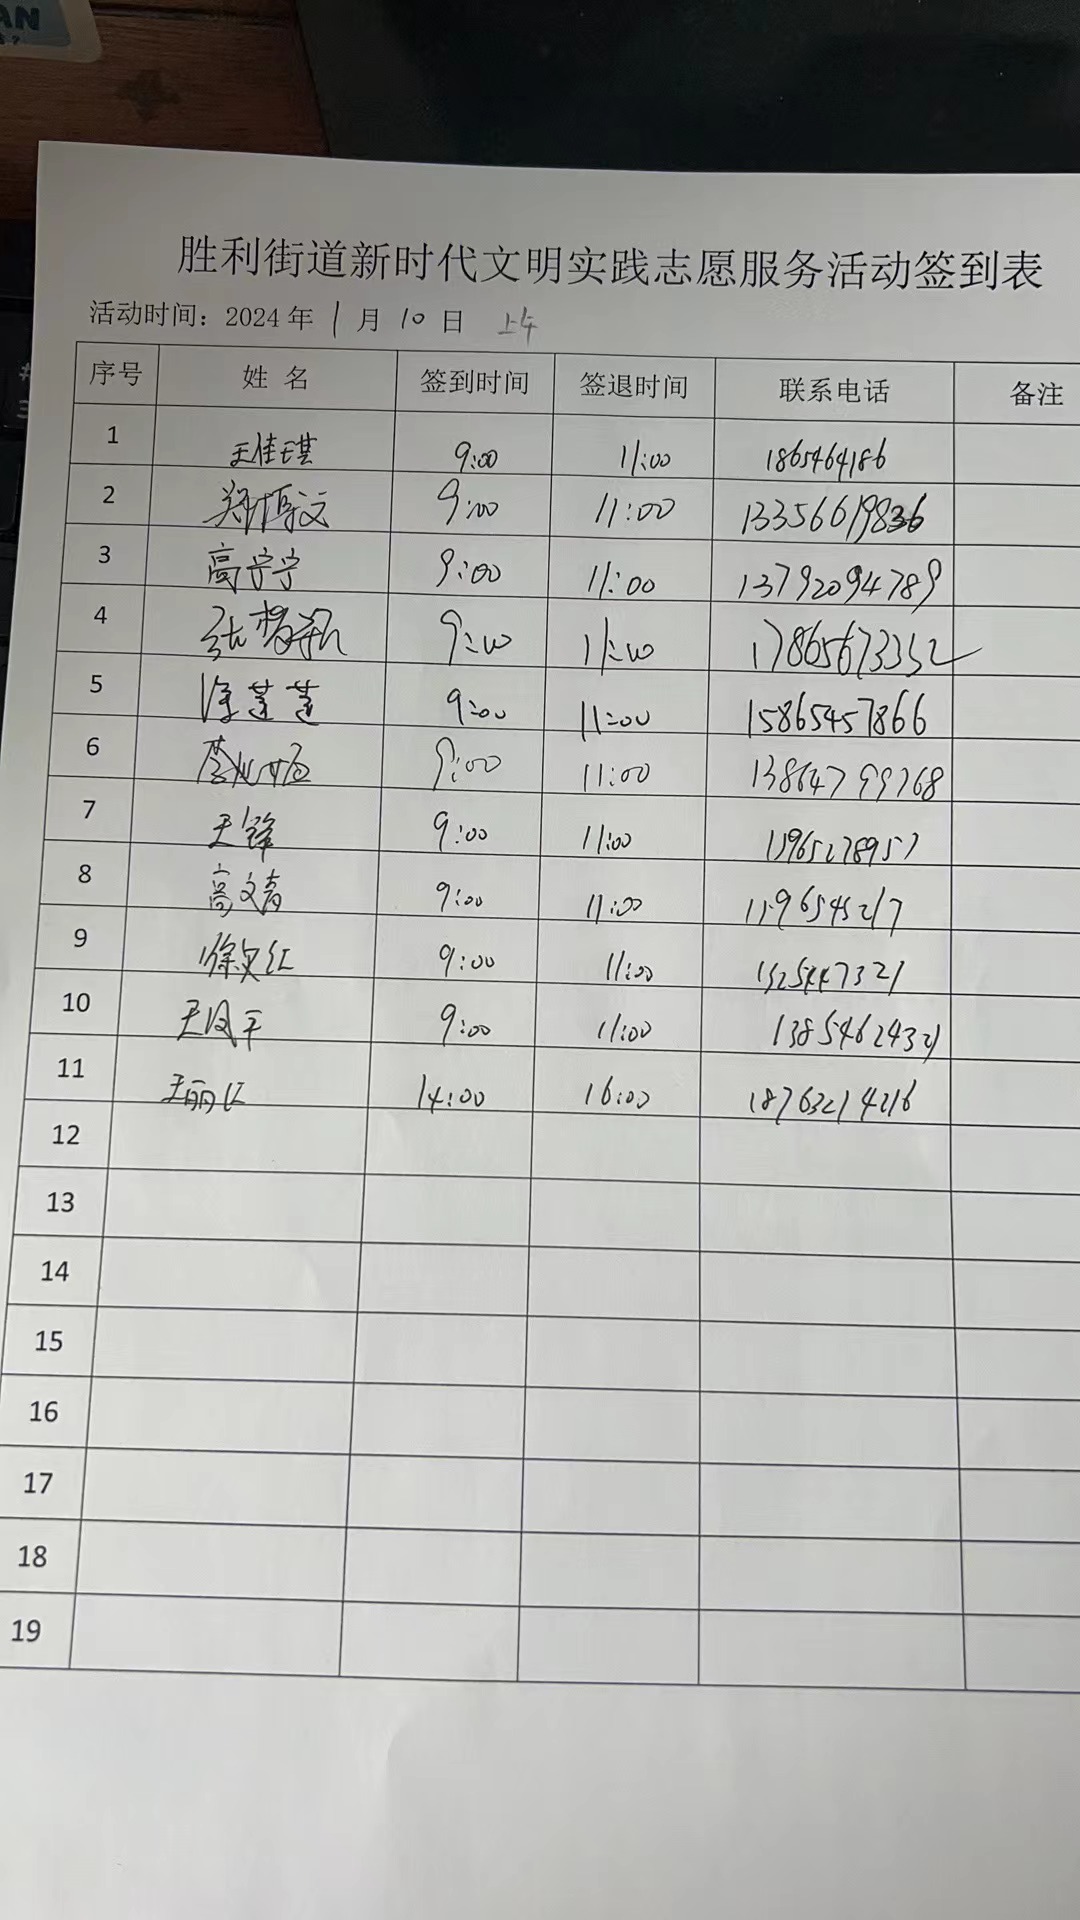 胜利街道新时代文明实践志愿服务活动签到表
活动时间：2024年 1月 10日 上午
序号 姓 名 签到时间 签退时间 联系电话 备注
1 王佳琪 9:00 11:00 1865464186
2 郑梅文 9:00 11:00 13356619836
3 高宁宁 9:00 11:00 13792094789
4 9:00 11:00 17865673352
5 徐莲莲 9:00 11:00 15865457866
6 9:00 11:00 13864799768
7 王锋 9:00 11:00
8 高文 9:00 11:00
9 徐 红 9:00 11:00
10 王风平 9:00 11:00
11 王丽江 14:00 16:00 18763214216
12
13
14
15
16
17
18
19